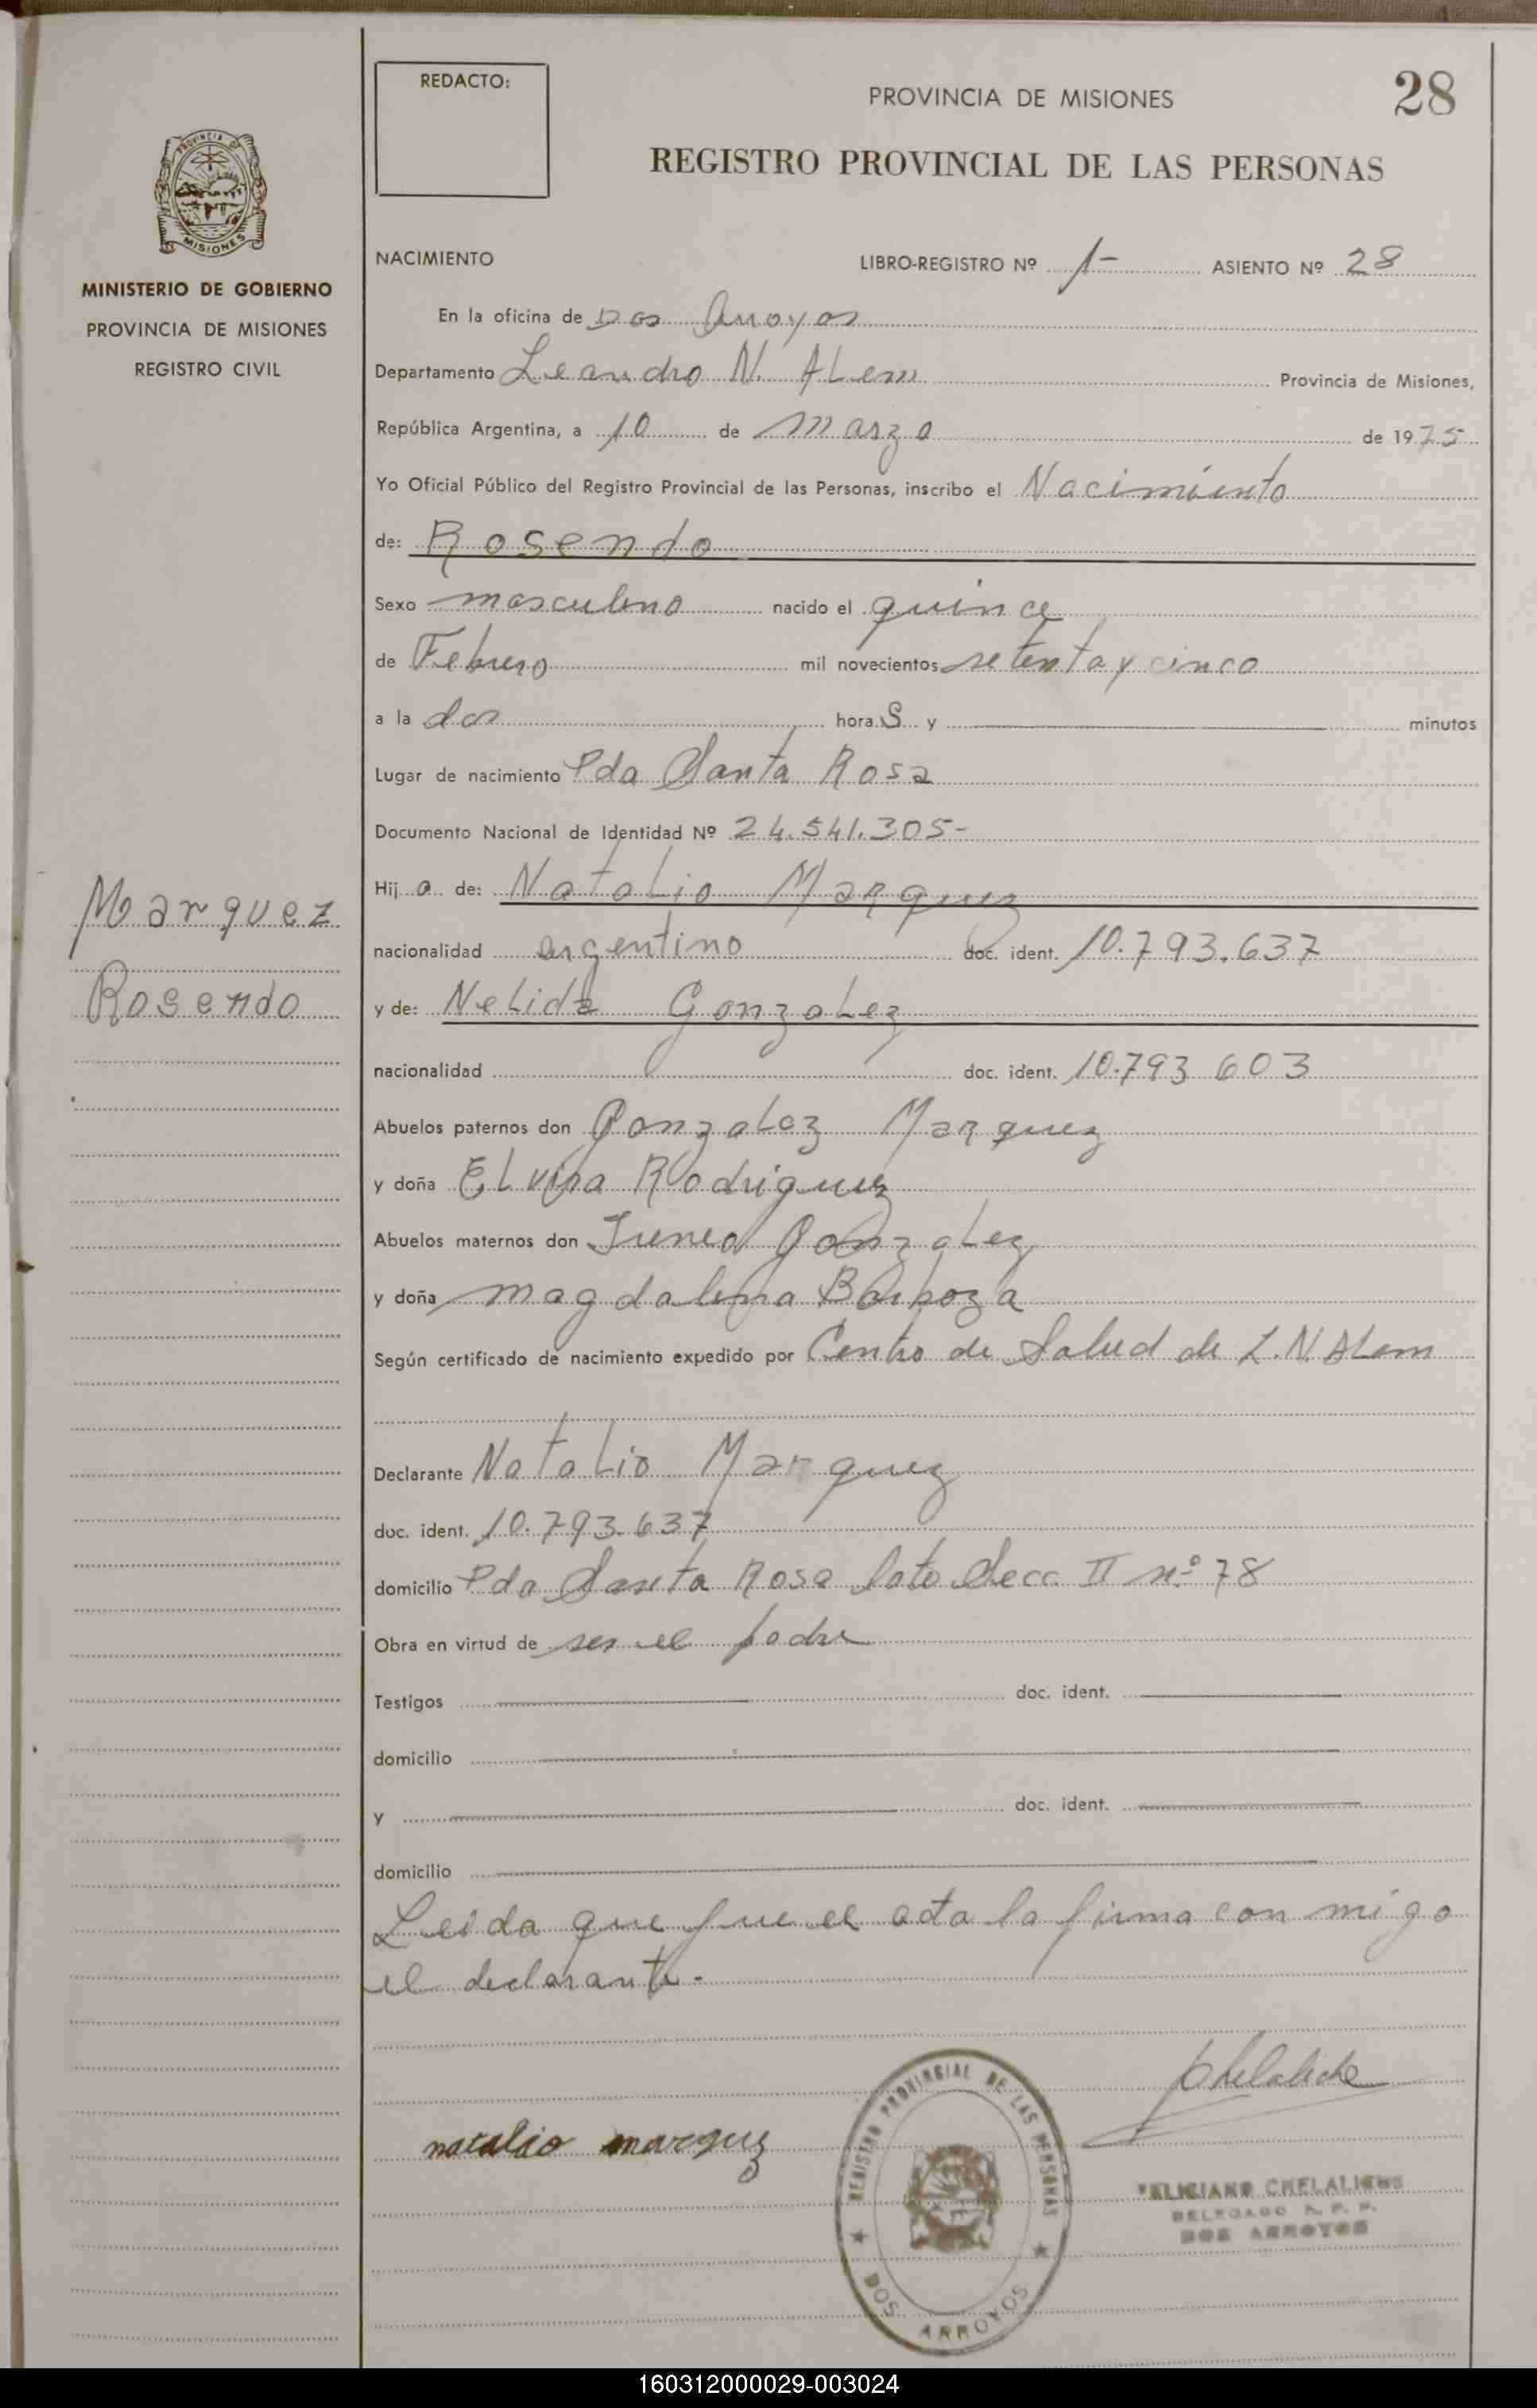 REDACTO:
PROVINCIA DE MISIONES
28
REGISTRO PROVINCIAL DE LAS PERSONAS
PROVINCIA DE
MISIONES
MINISTERIO DE GOBIERNO
PROVINCIA DE MISIONES
REGISTRO CIVIL
NACIMIENTO
LIBRO-REGISTRO Nº 1- ASIENTO Nº 28
En la oficina de Dos Arroyos
Departamento Leandro N. ALem Provincia de Misiones,
República Argentina, a 10 de marzo de 1975
Yo Oficial Público del Registro Provincial de las Personas, inscribo el Nacimiento
de: Rosendo
Sexo masculino nacido el quince
de Febrero mil novecientos setenta y cinco
a la dos hora S y minutos
Lugar de nacimiento Pda Santa Rosa
Documento Nacional de Identidad Nº 24.541.305-
Hij o de: Natalio Marquez
Marquez
nacionalidad argentino doc. ident. 10.793.637
Rosendo
y de: Nelida Gonzalez
nacionalidad doc. ident. 10.793 603
Abuelos paternos don Gonzalez Marquez
y doña Elvira Rodriguez
Abuelos maternos don Ireneo Gonzalez
y doña magdalena Barboza
Según certificado de nacimiento expedido por Centro de Salud de L.N. ALem
Declarante Natalio Marquez
doc. ident. 10.793.637
domicilio Pda Santa Rosa lote Secc. II nº 78
Obra en virtud de ser el padre
Testigos doc. ident.
domicilio
y doc. ident.
domicilio
Leida que fue el acta la firma con migo
el declarante.-
natalio marquz
REGISTRO PROVINCIAL DE LAS PERSONAS
DOS ARROYOS
FELICIANO CHELALICHE
DELEGADO R. P. P.
DOS ARROYOS
160312000029-003024